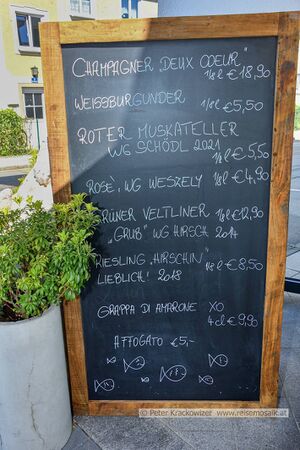 CHAMPAGNER „DEUX ODEUR"
1/8 l € 18,90
WEISSBURGUNDER 1/8 l € 5,50
ROTER MUSKATELLER
WG SCHÖDL 2021
1/8 l € 5,50
ROSÈ, WG WESZELY 1/8 l € 4,90
GRÜNER VELTLINER 1/8 l € 12,90
„GRUB" WG HIRSCH 2014
RIESLING „HIRSCHIN" 1/8 l € 8,50
LIEBLICH! 2018
GRAPPA DI AMARONE XO
4cl € 9,90
AFFOGATO € 5,-
© Peter Krackowizer www.reisemosaik.at